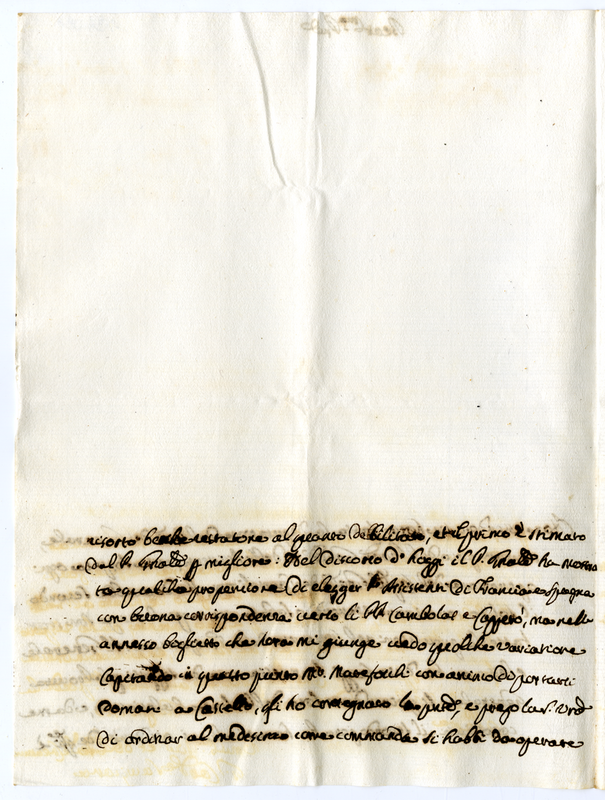 risorto benche restatone al quanto debilitato, et il primo è stimato
dal P. Gnale p migliore: Nel discorso d'hoggi il P. Gnale ha mostra
to qualche propensione di elegger li Assistenti di Francia e Spagna
con buona corrispondenza verso li PP. Cambolas e ma nell
annesso biglietto che hora mi giunge vedo qualche variatione
Capitando in questo punto Mr. Marefoschi con animo di portarsi
domani a Castello, gli ho consegnato la pnte, e prego la S. V.
di ordinar al medesimo come commanda si habbi da operare